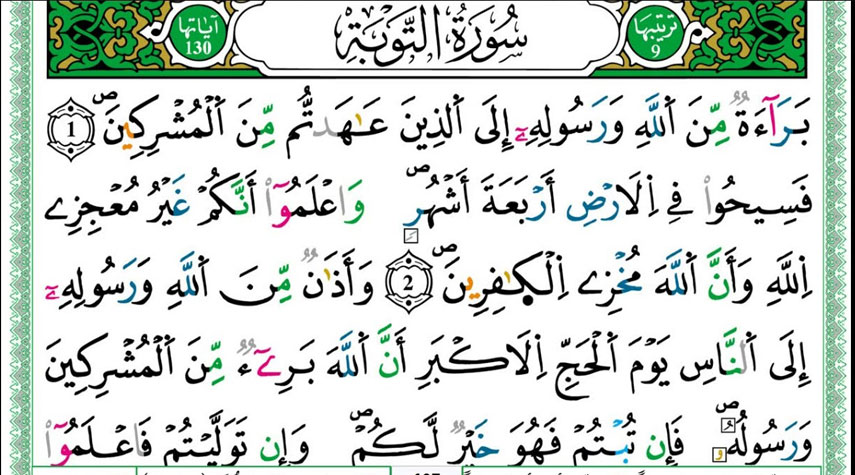 ترتيبها 9 سُورَةُ التَّوْبَةِ آياتها 130
بَرَآءَةٞ مِّنَ اَ۬للَّهِ وَرَسُولِهِۦٓ إِلَى اَ۬لذِينَ عَٰهَدتُّم مِّنَ اَ۬لْمُشْرِكِينَۖ 1
فَسِيحُواْ فِے اِ۬لَارْضِ أَرْبَعَةَ أَشْهُرٖۖ وَاعْلَمُوٓاْ أَنَّكُمْ غَيْرُ مُعْجِزِے
اِ۬للَّهِ وَأَنَّ اَ۬للَّهَ مُخْزِے اِ۬لْكٰ۪فِرِينَۖ 2 وَأَذَٰنٞ مِّنَ اَ۬للَّهِ وَرَسُولِهِۦٓ
إِلَى اَ۬لنَّاسِ يَوْمَ اَ۬لْحَجِّ اِ۬لَاكْبَرِ أَنَّ اَ۬للَّهَ بَرِےٓءٞ مِّنَ اَ۬لْمُشْرِكِينَ
وَرَسُولُهُۥۖ فَإِن تُبْتُمْ فَهُوَ خَيْرٞ لَّكُمْۖ وَإِن تَوَلَّيْتُمْ فَاعْلَمُوٓاْ